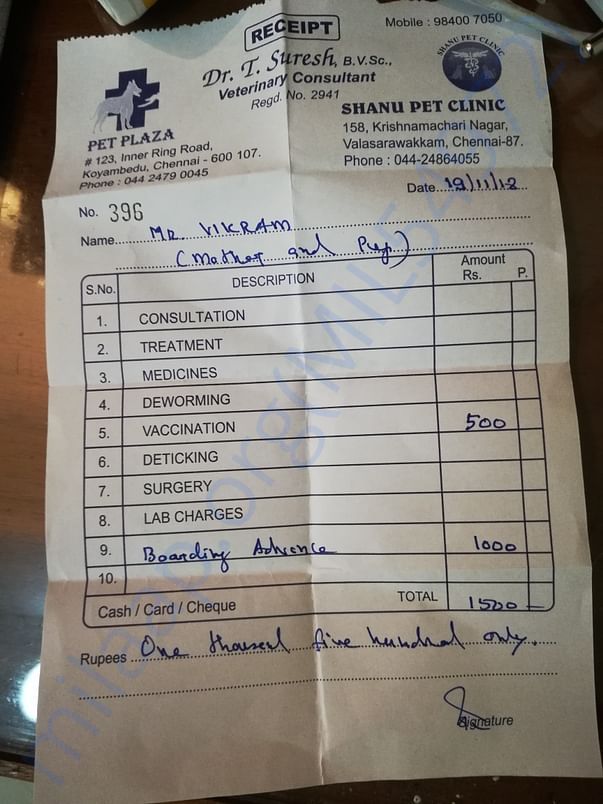 RECEIPT
Mobile : 98400 7050
Dr. T. Suresh, B.V.Sc.,
Veterinary Consultant
Regd. No. 2941
SHANU PET CLINIC
PET PLAZA
# 123, Inner Ring Road,
Koyambedu, Chennai - 600 107.
Phone : 044 2479 0045
SHANU PET CLINIC
158, Krishnamachari Nagar,
Valasarawakkam, Chennai-87.
Phone : 044-24864055
Date 19/11/12
No. 396
Name MR VIKRAM
(Mother and Pup)
S.No. DESCRIPTION Amount
Rs. P.
1. CONSULTATION
2. TREATMENT
3. MEDICINES
4. DEWORMING
5. VACCINATION 500
6. DETICKING
7. SURGERY
8. LAB CHARGES
9. Boarding Advance 1000
10.
Cash / Card / Cheque TOTAL 1500
Rupees One thousand five hundred only.
Signature